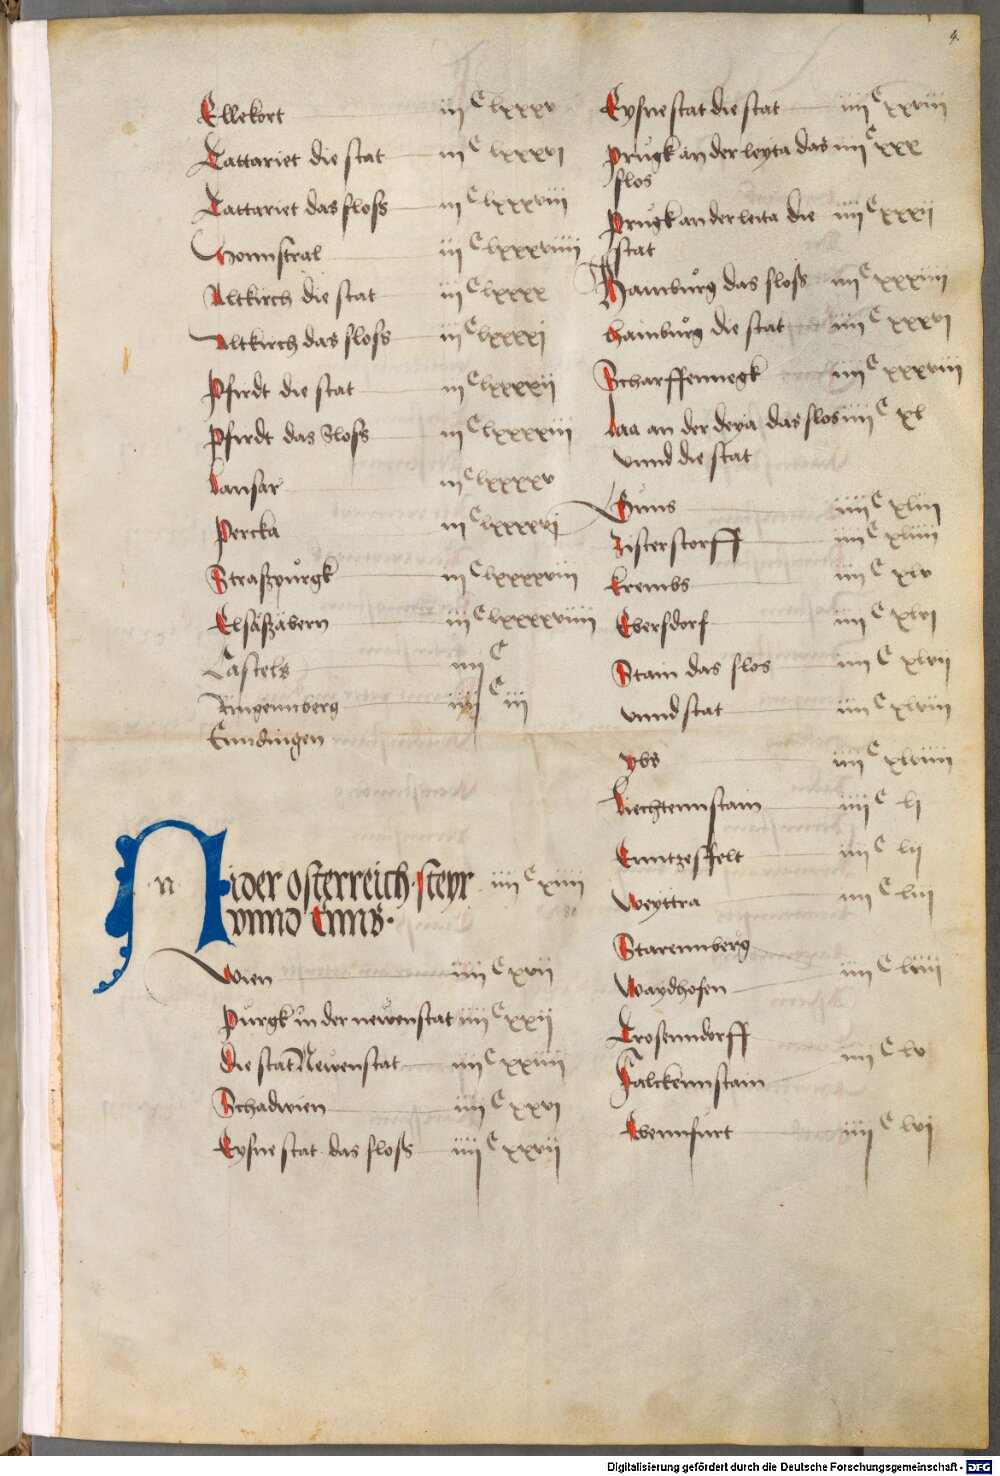 4.
Ellekort iii C lxxxv
Tattariet die stat iii C lxxxvi
Tattariet das sloss iii C lxxxviii
Vonnstral iii C lxxxviiii
Altkirch die stat iii C lxxxx
Altkirch das sloss iii C lxxxxj
Pfirdt die stat iii C lxxxxii
Pfirdt das Sloss iii C lxxxxiii
Lansar iii C lxxxxv
Percka iii C lxxxxvj
Straszpůrgk iii C lxxxxviii
Elsäszäbern iii C lxxxxviiii
Castels iiii C
Ringennberg iiii C iii
Enndingen
Nider osterreich steyr iiii C xiiii
vnnd Enns.
Wien iiii C xvii
Pürgk in der newenstat iiii C xxii
Die stat Newenstat iiii C xxiiii
Schadwien iiii C xxvi
Eysne stat das sloss iiii C xxvii
Eysnestat die stat iiii C xxviii
Průgk an der leyta das iiii C xxx
slos
Průgk an der leita die iiii C xxxii
stat
Hamburg das sloss iiii C xxxiiii
Hainbůrg die stat iiii C xxxvi
Scharffennegk iiii C xxxviii
Laa an der deya das slos iiii C xl
vnnd die stat
Güns iiii C xliii
Zisterstorff iiii C xliiii
Krembs iiii C xlv
Ebersdorf iiii C xlvi
Stain das slos iiii C xlvii
vnnd stat iiii C xlviii
Ybs iiii C xlviiii
Liechtennstain iiii C li
Enntzesfelt iiii C lii
Weyttra iiii C liii
Starennberg
Waydhofen iiii C liiii
Drosenndorff
Falckennstain iiii C lv
Ebennfurt iiii C lvi
Digitalisierung gefördert durch die Deutsche Forschungsgemeinschaft - DFG